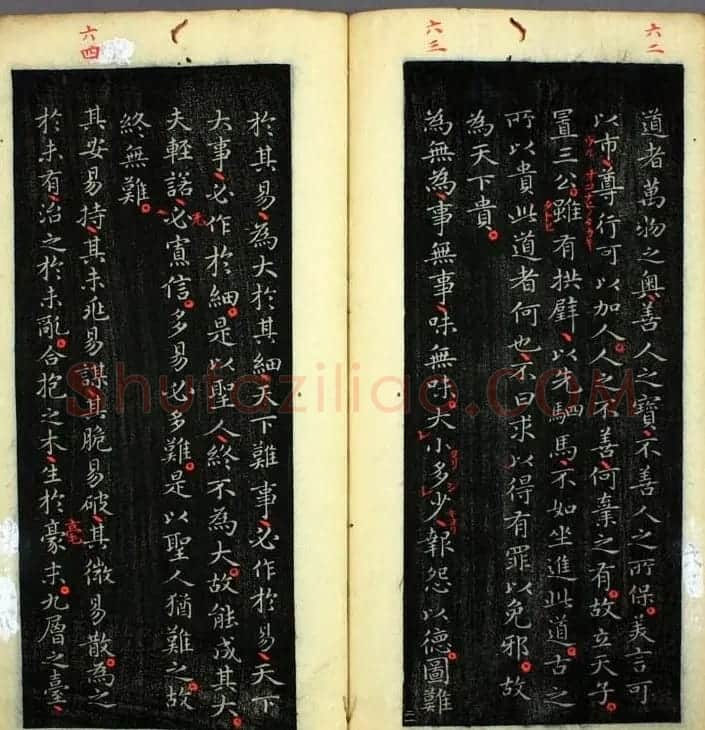 六二
道者萬物之奧善人之寶不善人之所保美言可
以市尊行可以加人人之不善何棄之有故立天子
置三公雖有拱璧以先駟馬不如坐進此道古之
所以貴此道者何也不曰求以得有罪以免邪故
為天下貴
六三
為無為事無事味無味大小多少報怨以德圖難
於其易為大於其細天下難事必作於易天下
大事必作於細是以聖人終不為大故能成其大
夫輕諾必寡信多易必多難是以聖人猶難之故
終無難
六四
其安易持其未兆易謀其脆易破其微易散為之
於未有治之於未亂合抱之木生於豪末九層之臺
Shufaziliao.COM